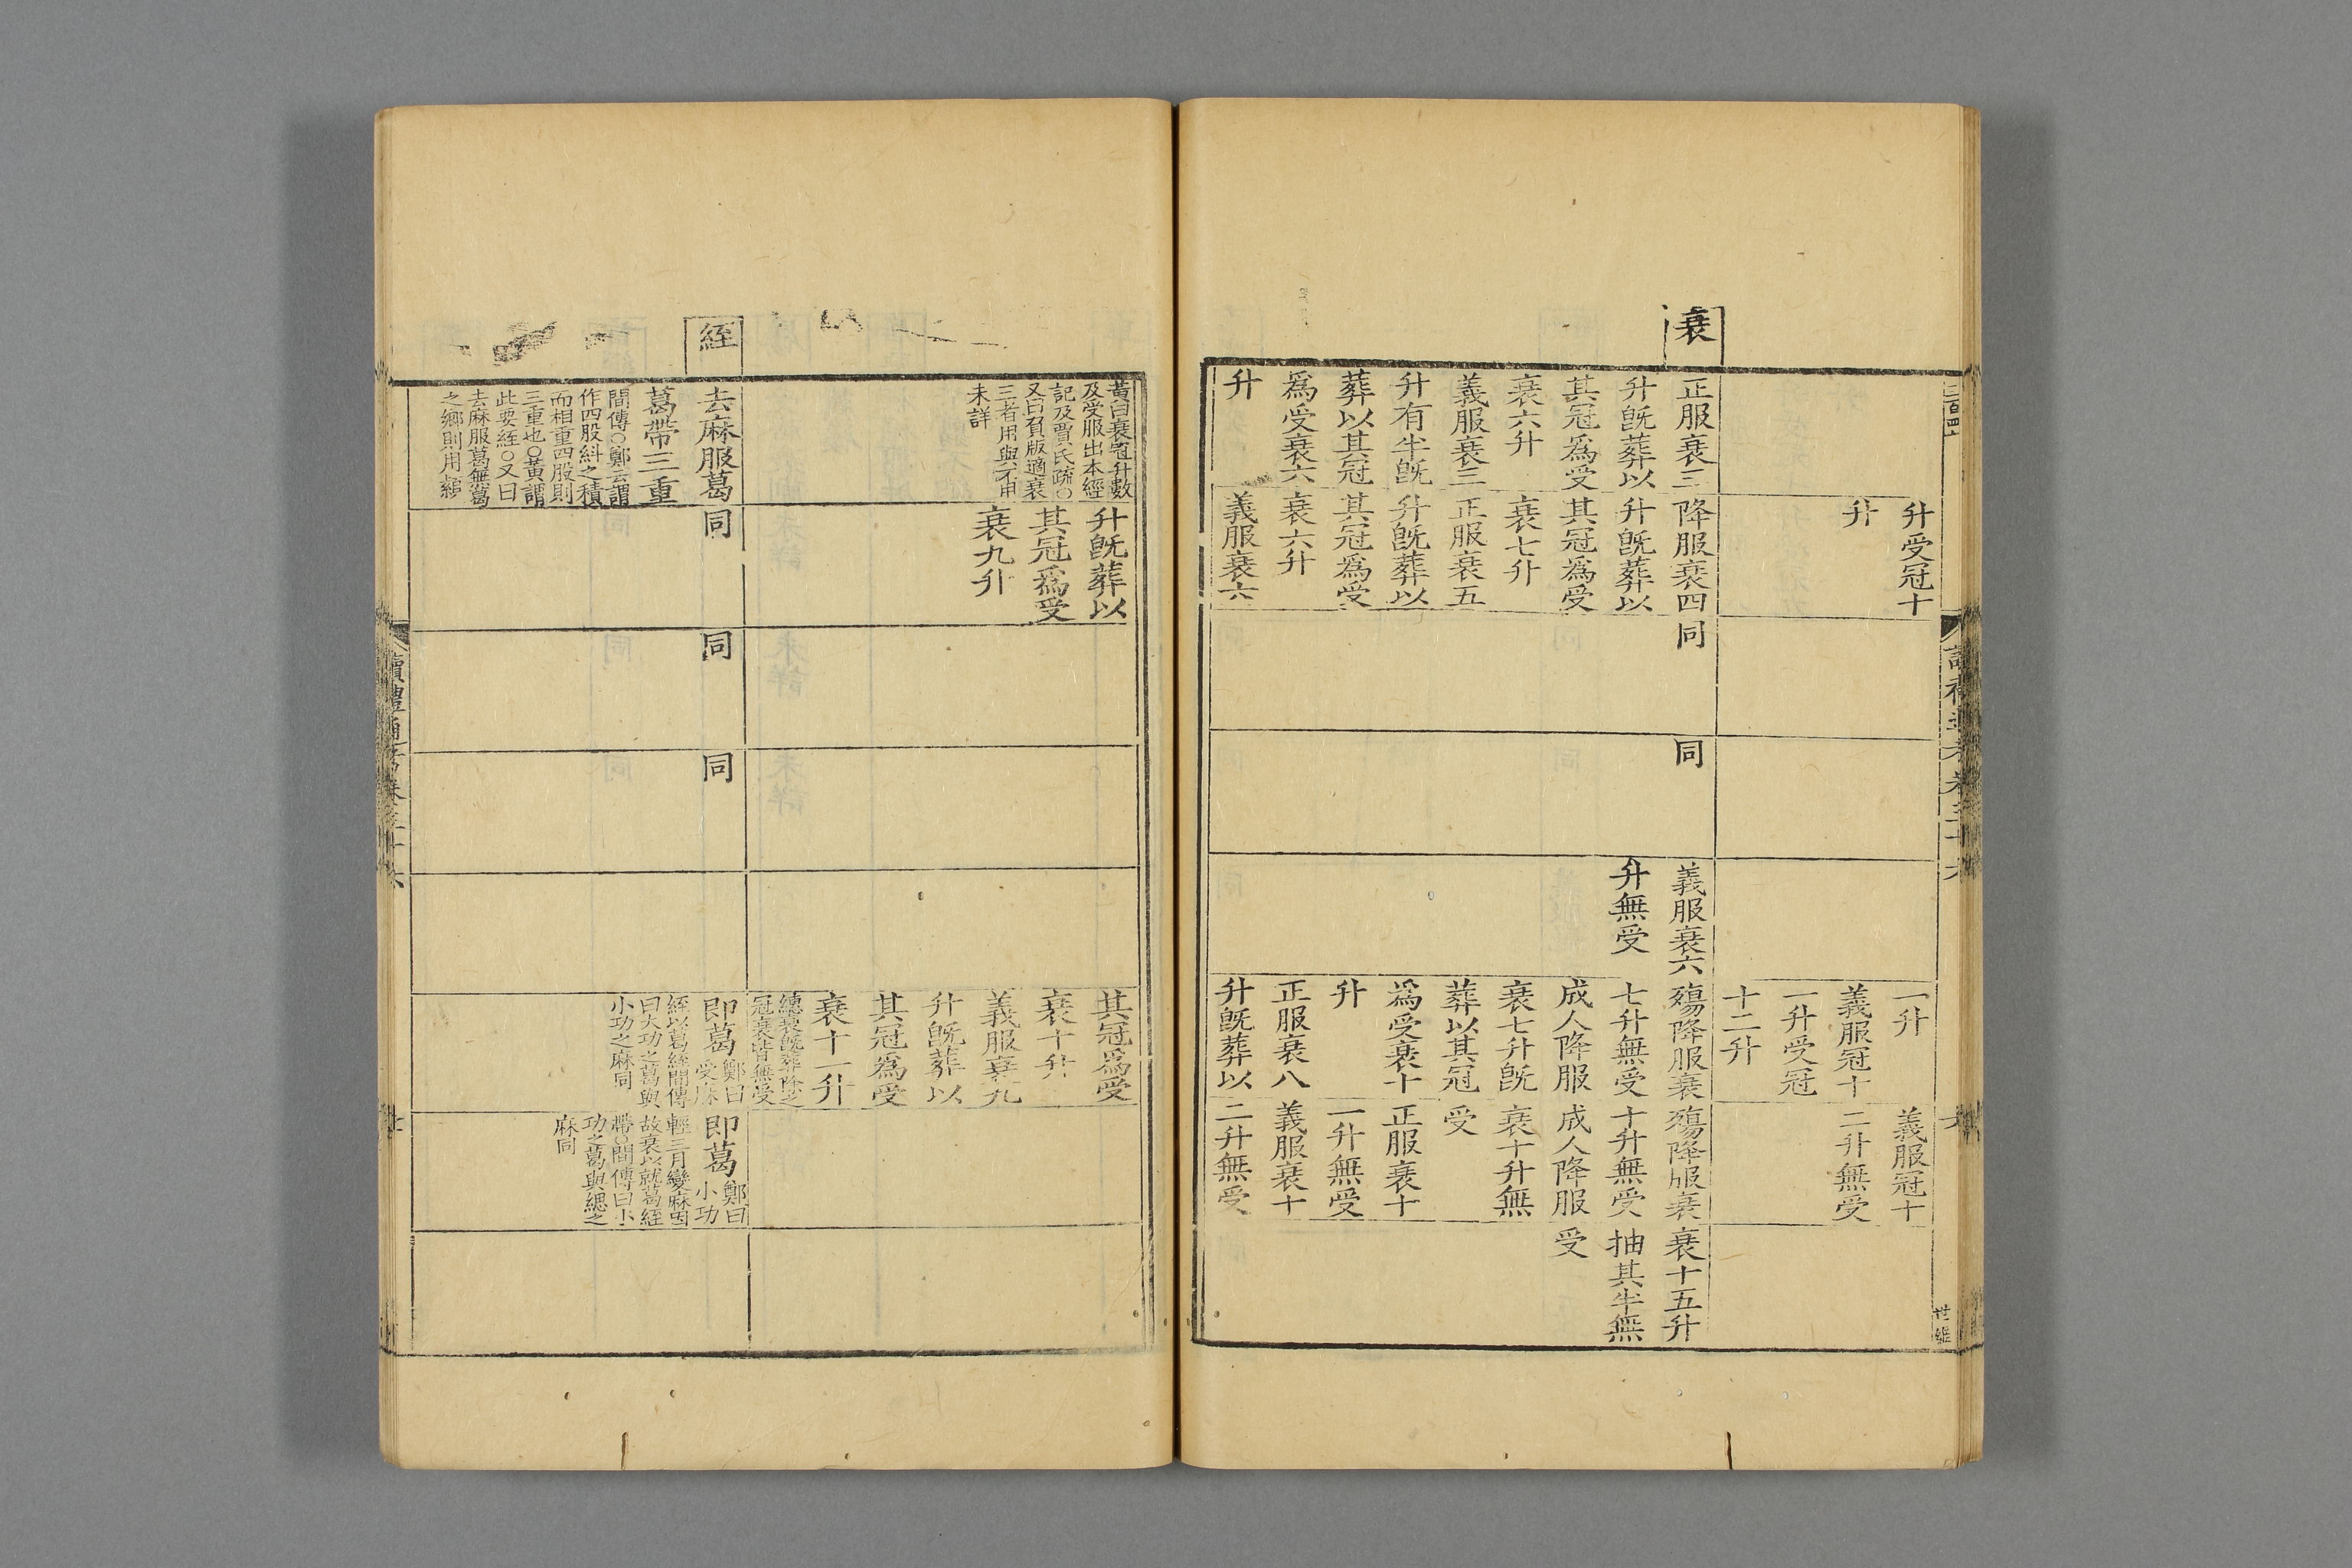 升受冠十
升
一升
義服冠十
一升受冠
十二升
義服冠十
二升無受
衰
正服衰三
升旣葬以
其冠爲受
衰六升
義服衰三
升有半旣
葬以其冠
爲受衰六
升
降服衰四
升旣葬以
其冠爲受
衰七升
正服衰五
升旣葬以
其冠爲受
衰六升
義服衰六
同
同
義服衰六
升無受
殤降服衰
七升無受
成人降服
衰七升旣
葬以其冠
爲受衰十
升
正服衰八
升旣葬以
殤降服衰
十升無受
成人降服
衰十升無
受
正服衰十
一升無受
義服衰十
二升無受
衰十五升
抽其半無
受
世維
黃曰衰冠升數
及受服出本經
記及賈氏疏○
又曰負版適衰
三者用與不用
未詳
升旣葬以
其冠爲受
衰九升
其冠爲受
衰十升
義服衰九
升旣葬以
其冠爲受
衰十一升
繐衰旣葬除之
冠衰皆無受
絰
去麻服葛
葛帶三重
間傳○鄭云謂
作四股糾之積
而相重四股則
三重也○黃謂
此要絰○又曰
去麻服葛無葛
之鄉則用顈
同
同
同
即葛鄭曰
受麻
絰以葛絰間傳
曰大功之葛與
小功之麻同
即葛鄭曰
小功
輕三月變麻因
故衰以就葛絰
帶○間傳曰小
功之葛與緦之
麻同
讀禮通考卷三十六